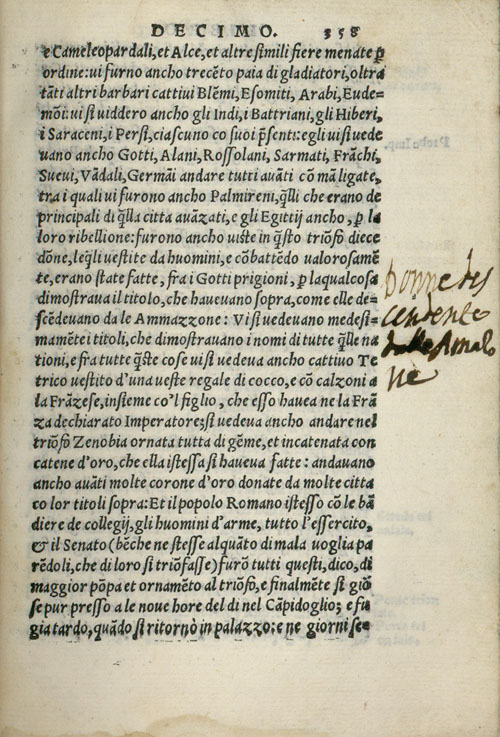 DECIMO. 358
e Cameleopardali, et Alce, et altre simili fiere menate ꝑ
ordine: ui furno ancho trecẽto paia di gladiatori, oltra
tãti altri barbari cattiui Blẽmi, Esomiti, Arabi, Eude=
mõi: ui si uiddero ancho gli Indi, i Battriani, gli Hiberi,
i Saraceni, i Persi, ciascuno co suoi p̃senti: egli ui si uede
uano ancho Gotti, Alani, Rossolani, Sarmati, Frãchi,
Sueui, Vãdali, Germãi andare tutti auãti cõ mã ligate,
tra i quali ui furono ancho Palmireni, q̃lli che erano de
principali di q̃lla citta auãzati, e gli Egittij ancho, ꝑ la
loro ribellione: furono ancho uiste in q̃sto triõfo diece
dõne, leq̃li uestite da huomini, e cõbattẽdo ualorosamẽ
te, erano state fatte, fra i Gotti prigioni, ꝑ laqualcosa
dimostraua il titolo, che haueuano sopra, come elle de=
scẽdeuano da le Ammazzone: Vi si uedeuano medesi=
mamẽtei titoli, che dimostrauano i nomi di tutte q̃lle na
tioni, e fra tutte q̃ste cose ui si uedeua ancho cattiuo Te
trico uestito d'una ueste regale di cocco, e cõ calzoni a
la Frãzese, insieme co'l figlio, che esso hauea ne la Frã
za dechiarato Imperatore; si uedeua ancho andare nel
triõfo Zenobia ornata tutta di gẽme, et incatenata con
catene d'oro, che ella istessa si haueua fatte: andauano
ancho auãti molte corone d'oro donate da molte citta
co lor titoli sopra: Et il popolo Romano istesso cõ le bã
diere de collegij, gli huomini d'arme, tutto l'essercito,
& il Senato (bẽche ne stesse alquãto di mala uoglia pa
rẽdoli, che di loro si triõfasse) furõ tutti questi, dico, di
maggior põpa et ornamẽto al triõfo, e finalmẽte si giõ
se pur presso a le noue hore del di nel Cãpidoglio; e fu
gia tardo, quãdo si ritornò in palazzo: e ne giorni se=
Donne des
cendente
dalle Amazo
ne